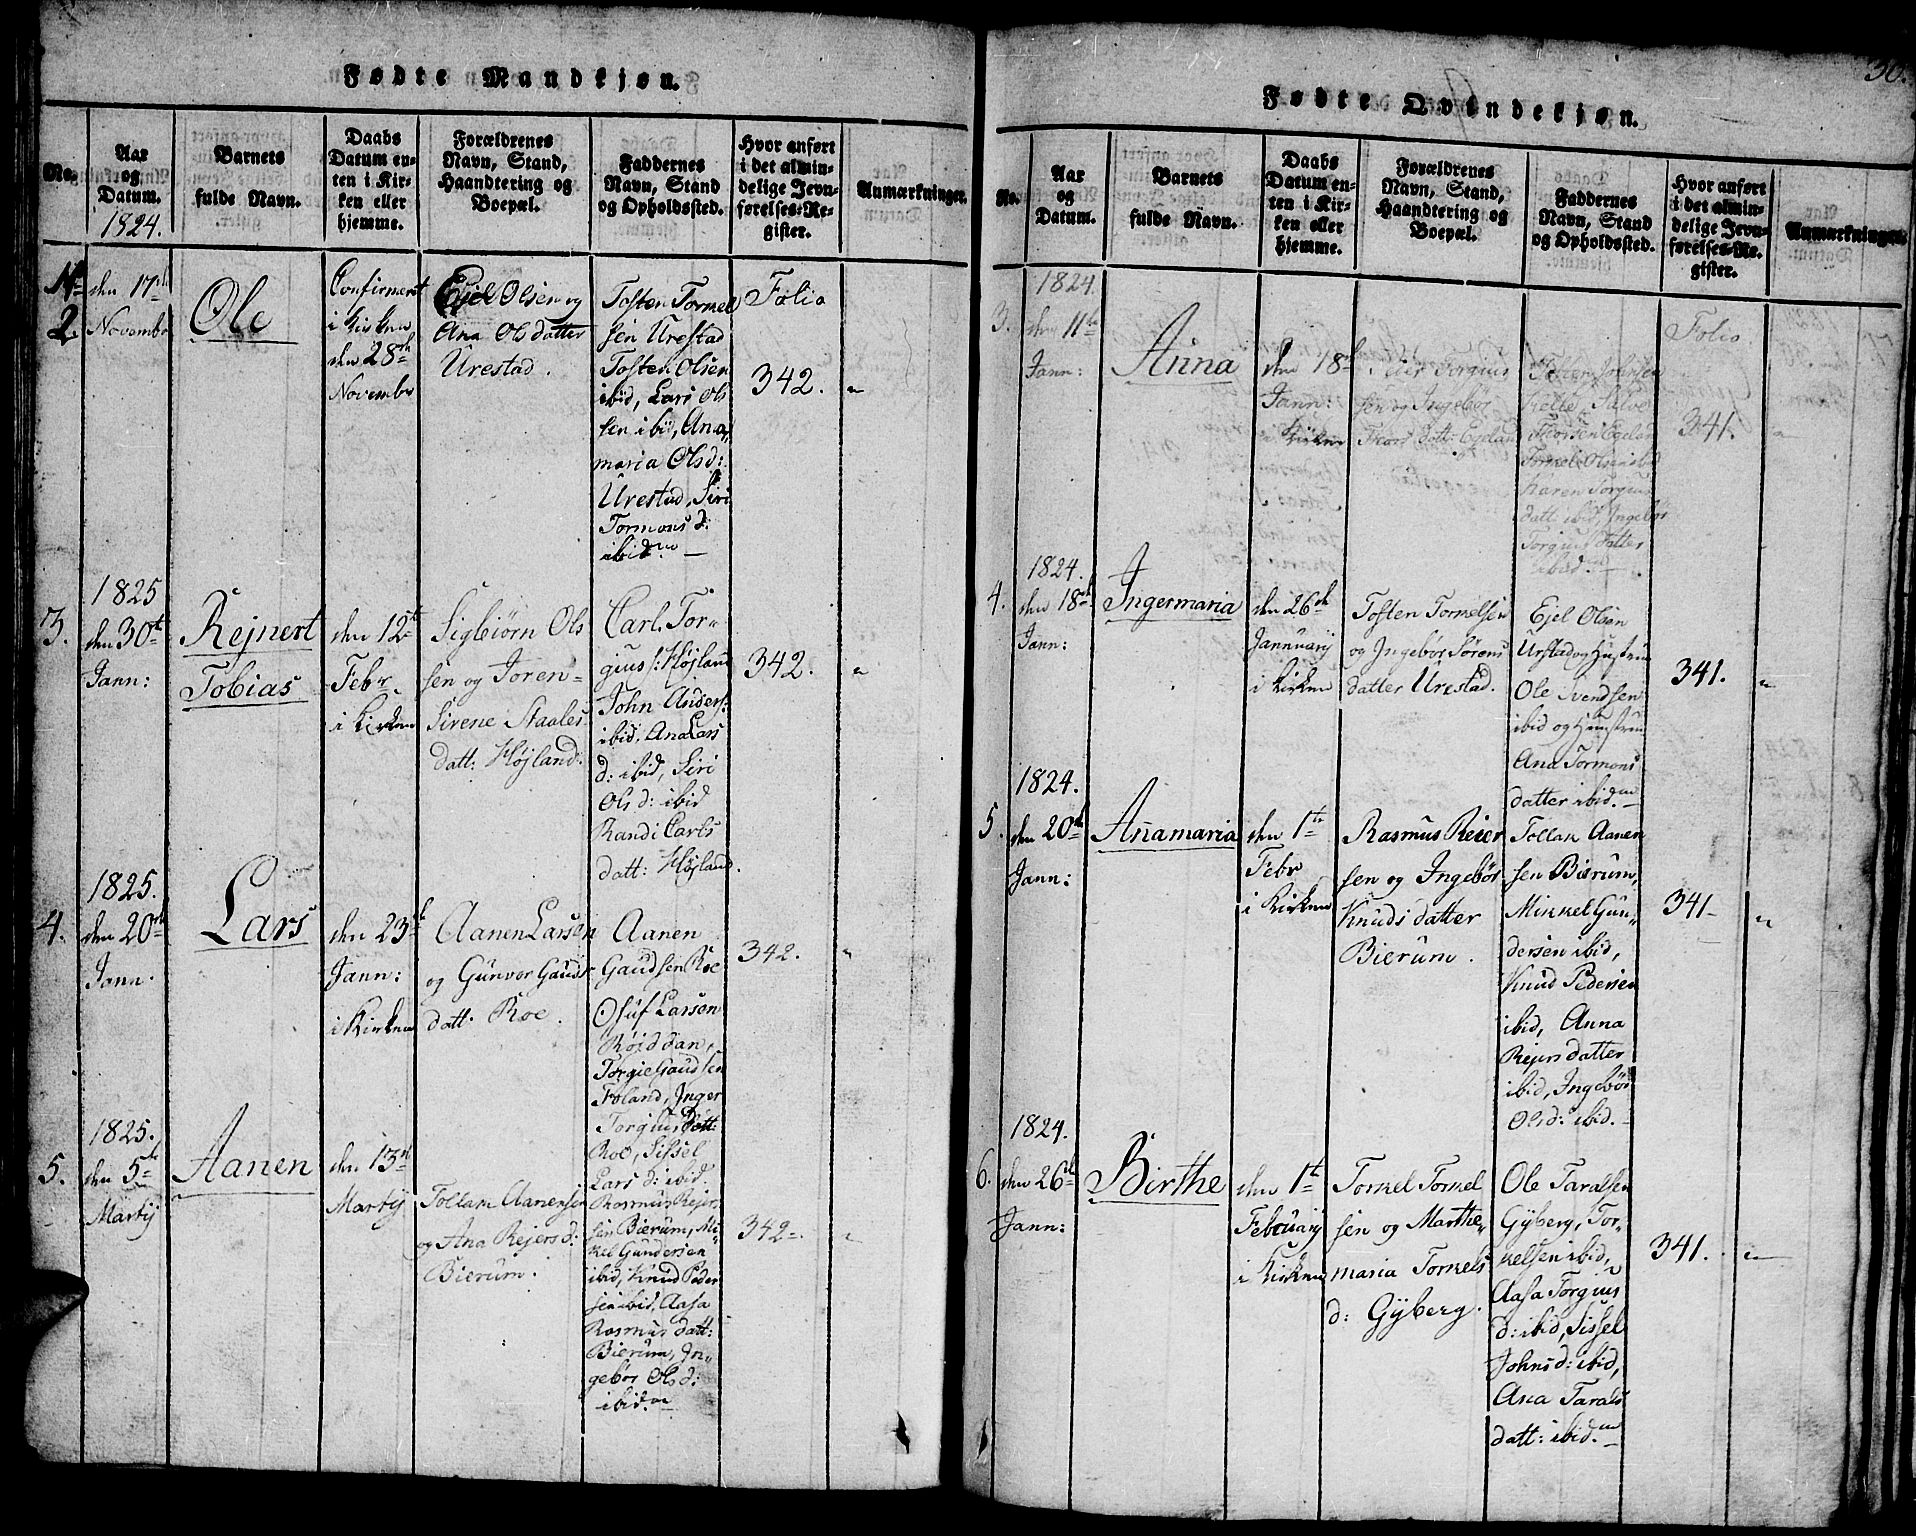 Fødte Mandkjøn.
No.
Aar
og
Datum.
1824.
Barnets
fulde Navn.
Daabs
Datum en-
ten i Kir-
ken eller
hjemme.
Forældrenes
Navn, Stand,
Haandtering og
Boepæl.
Faddernes
Navn, Stand
og Opholdssted.
Hvor anført
i det almin-
delige Jevn-
førelses-Re-
gister.
Anmærkninger.
2.
den 17de
Novembr
Ole
Confirmert
i Kirken
den 28de
Novembr
Ejel Olsen og
Ana Olsdatter
Urestad.
Tosten Tormel
sen Urestad
Tosten Olsen
ibid, Lars Ol
sen ibid, Ana
maria Olsd:
Urestad, Siri
Tormons d:
ibid.
Folio
342.
1825
3.
den 30te
Jann:
Rejnert
Tobias
den 12te
Febr
i Kirken
Sigbiörn Ols
sen og Joren-
Sirene Staales
datt: Höjland.
Carl Tor-
gius s: Höjland
John Anders:
ibid. Ana Lars
d: ibid, Siri
Ols d: ibid
Randi Carls
datt: Höjland.
342.
1825.
4.
den 20de
Jann.
Lars
den 23de
Jann:
i Kirken
Aanen Larsen
og Gunvor Gauds
datt. Roe.
Aanen
Gaudsen Roe
Oluf Larsen
Röiddan,
Torgie Gaudsen
Foland, Inger
Torgius Datt:
Roe, Sissel
Lars d: ibid.
342.
1825.
5.
den 5te
Martij
Aanen
den 13de
Martij
Tollak Aanensen
og Ana Rejers d:
Bierum.
Rasmus Rejer
sen Bierum, Mi-
kel Gundersen
ibid, Knud Peder
sen ibid, Aasa
Rasmus datt:
Bierum, In-
gebor Ols d:
ibid.
342.
30.
Fødte Qvindekjøn.
No.
Aar
og
Datum.
Barnets
fulde Navn.
Daabs
Datum en-
ten i Kir-
ken eller
hjemme.
Forældrenes
Navn, Stand,
Haandtering og
Boepæl.
Faddernes
Navn, Stand
og Opholdssted.
Hvor anført
i det almin-
delige Jevn-
førelses-Re-
gister.
Anmærkninger.
1824.
3.
den 11te
Jann:
Anna
den 18de
Jann:
i Kirken
Torgius
sen og Ingebor
Thors datt: Egeland
Salve
Thorsen Egeland
Torkel Olsen ibid
Karen Torgius
datt ibid, Ingebor
Torgius datter
ibid.
Folio
341.
1824.
4.
den 18de
Jann:
Ingermaria
den 26de
Jannuarij
i Kirken
Tosten Tormelsen
og Ingebor Sörens
datter Urestad.
Ejel Olsen
Urstad og Hustrue
Ole Svendsen
ibid og Hustrue
Ana Tormons
datter ibid.
341.
1824.
5.
den 20de
Jann:
Anamaria
den 1te
Febr
i Kirken
Rasmus Reier
sen og Ingebör
Knuds datter
Bierum.
Tollak Aanen
sen Bierum,
Mikkel Gun-
dersen ibid,
Knud Pedersen
ibid, Anna
Rejers datter
ibid, Ingebör
Ols d: ibid.
341
1824.
6.
den 26de
Jann:
Birthe
den 1te
Februarij
i Kirken
Tormel Tormel
sen og Marthe-
maria Tormels
d: Gÿberg.
Ole Taralsen
Gÿberg, Tor-
kelsen ibid,
Aasa Torgius
d: ibid, Sissel
Johns d: ibid,
Ana Tarals
datt: ibid.
341.